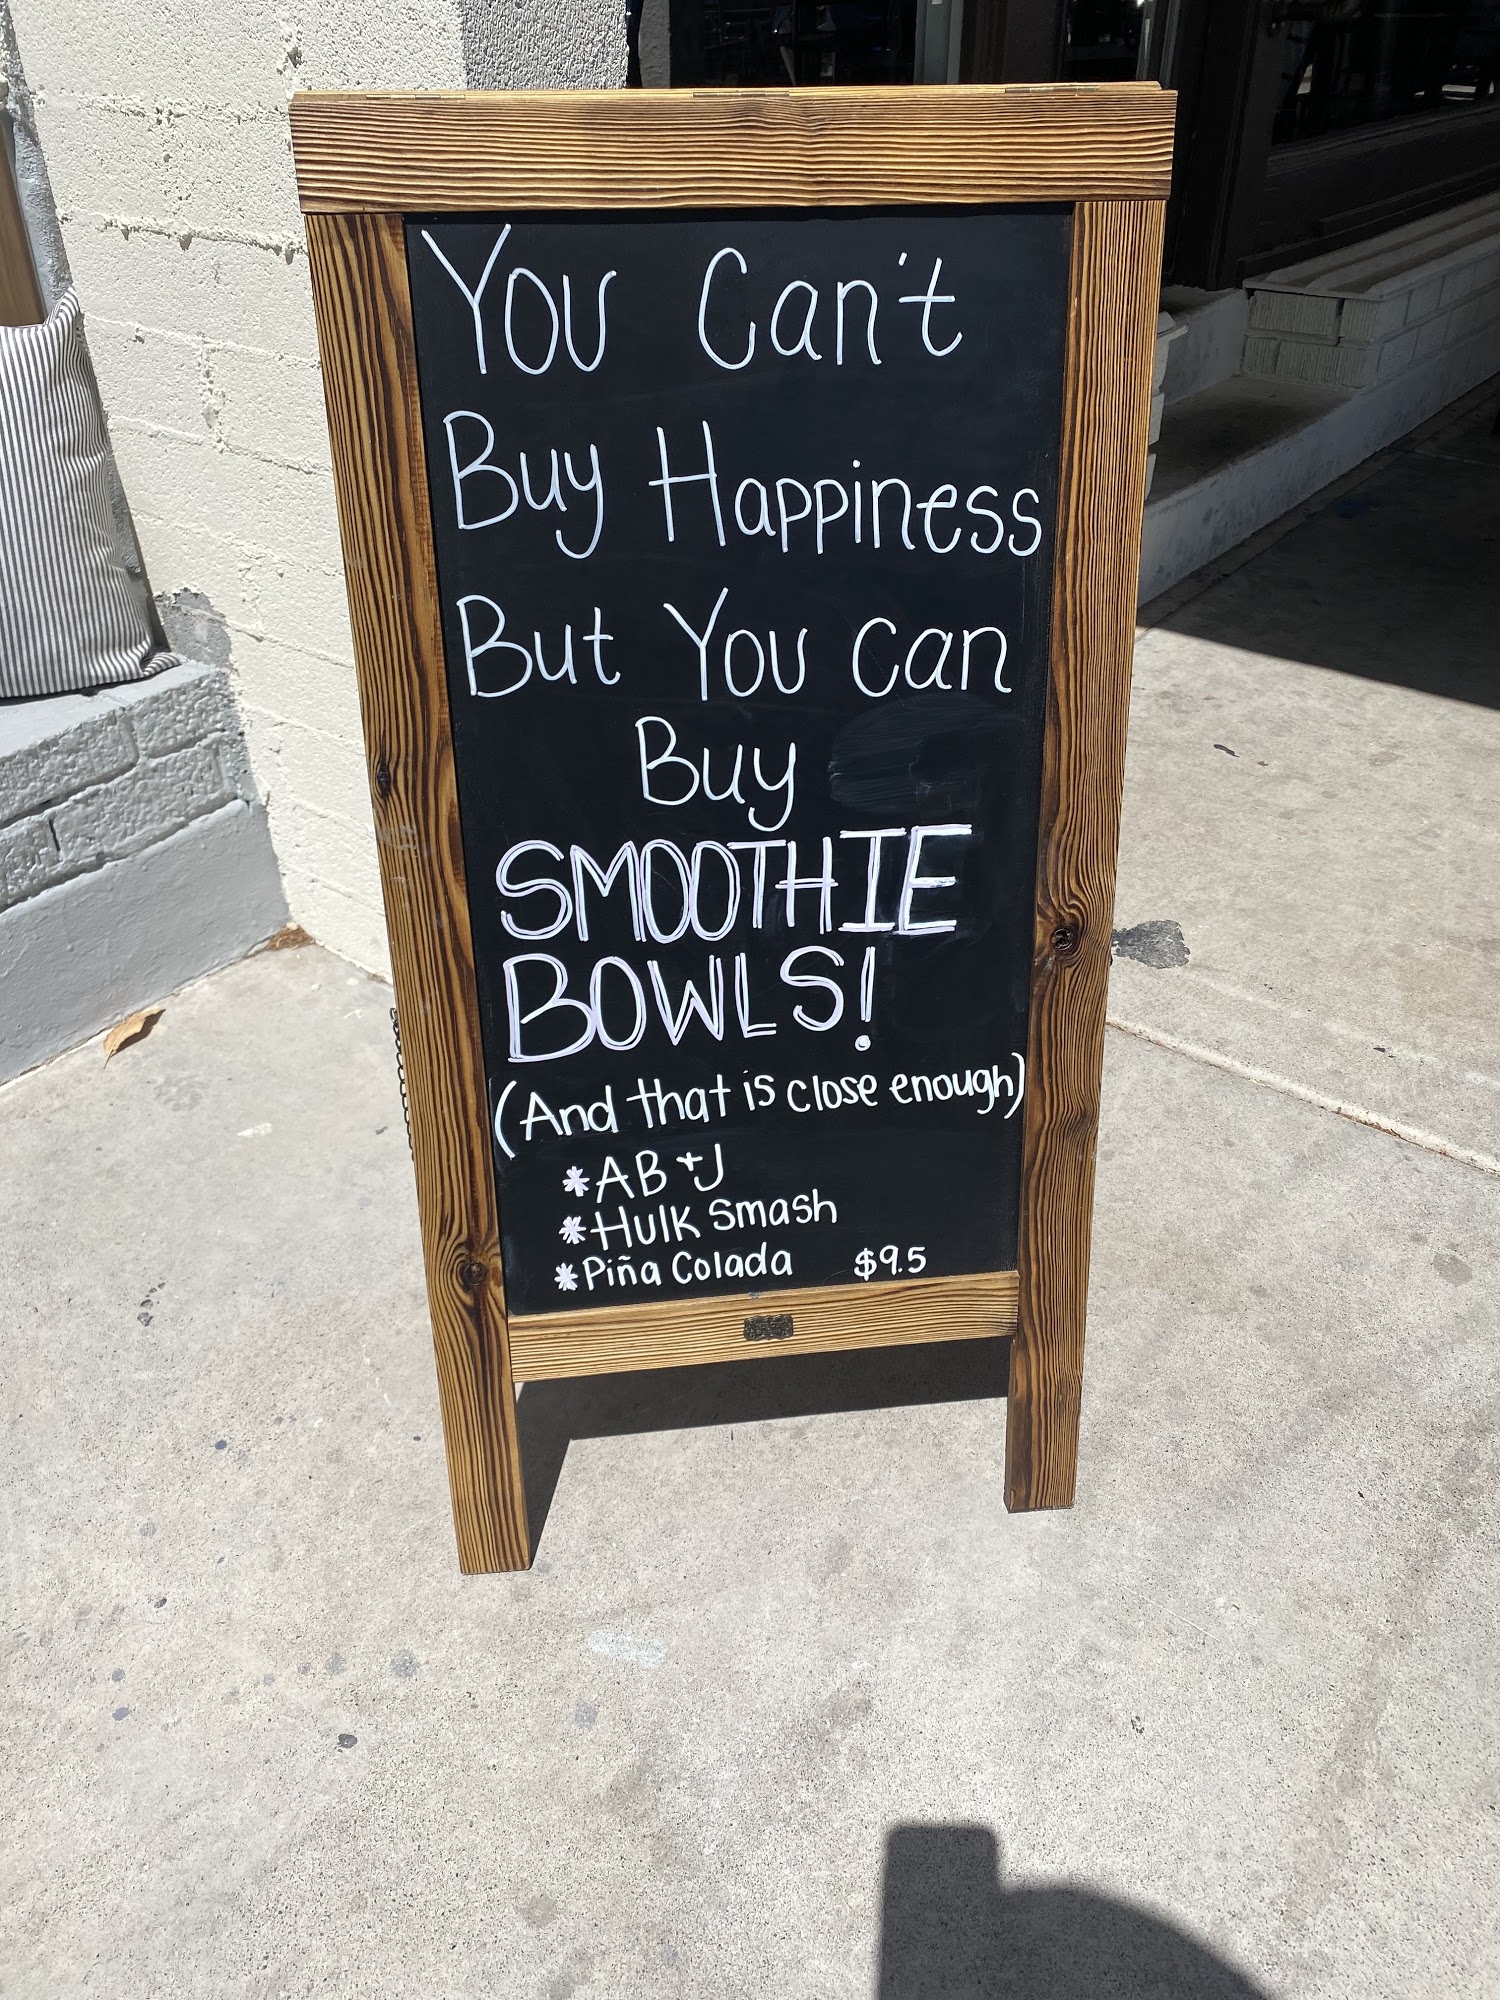 You Can't
Buy Happiness
But You can
Buy
SMOOTHIE
BOWLS!
(And that is close enough)
*AB+J
*Hulk Smash
*Piña Colada $9.5